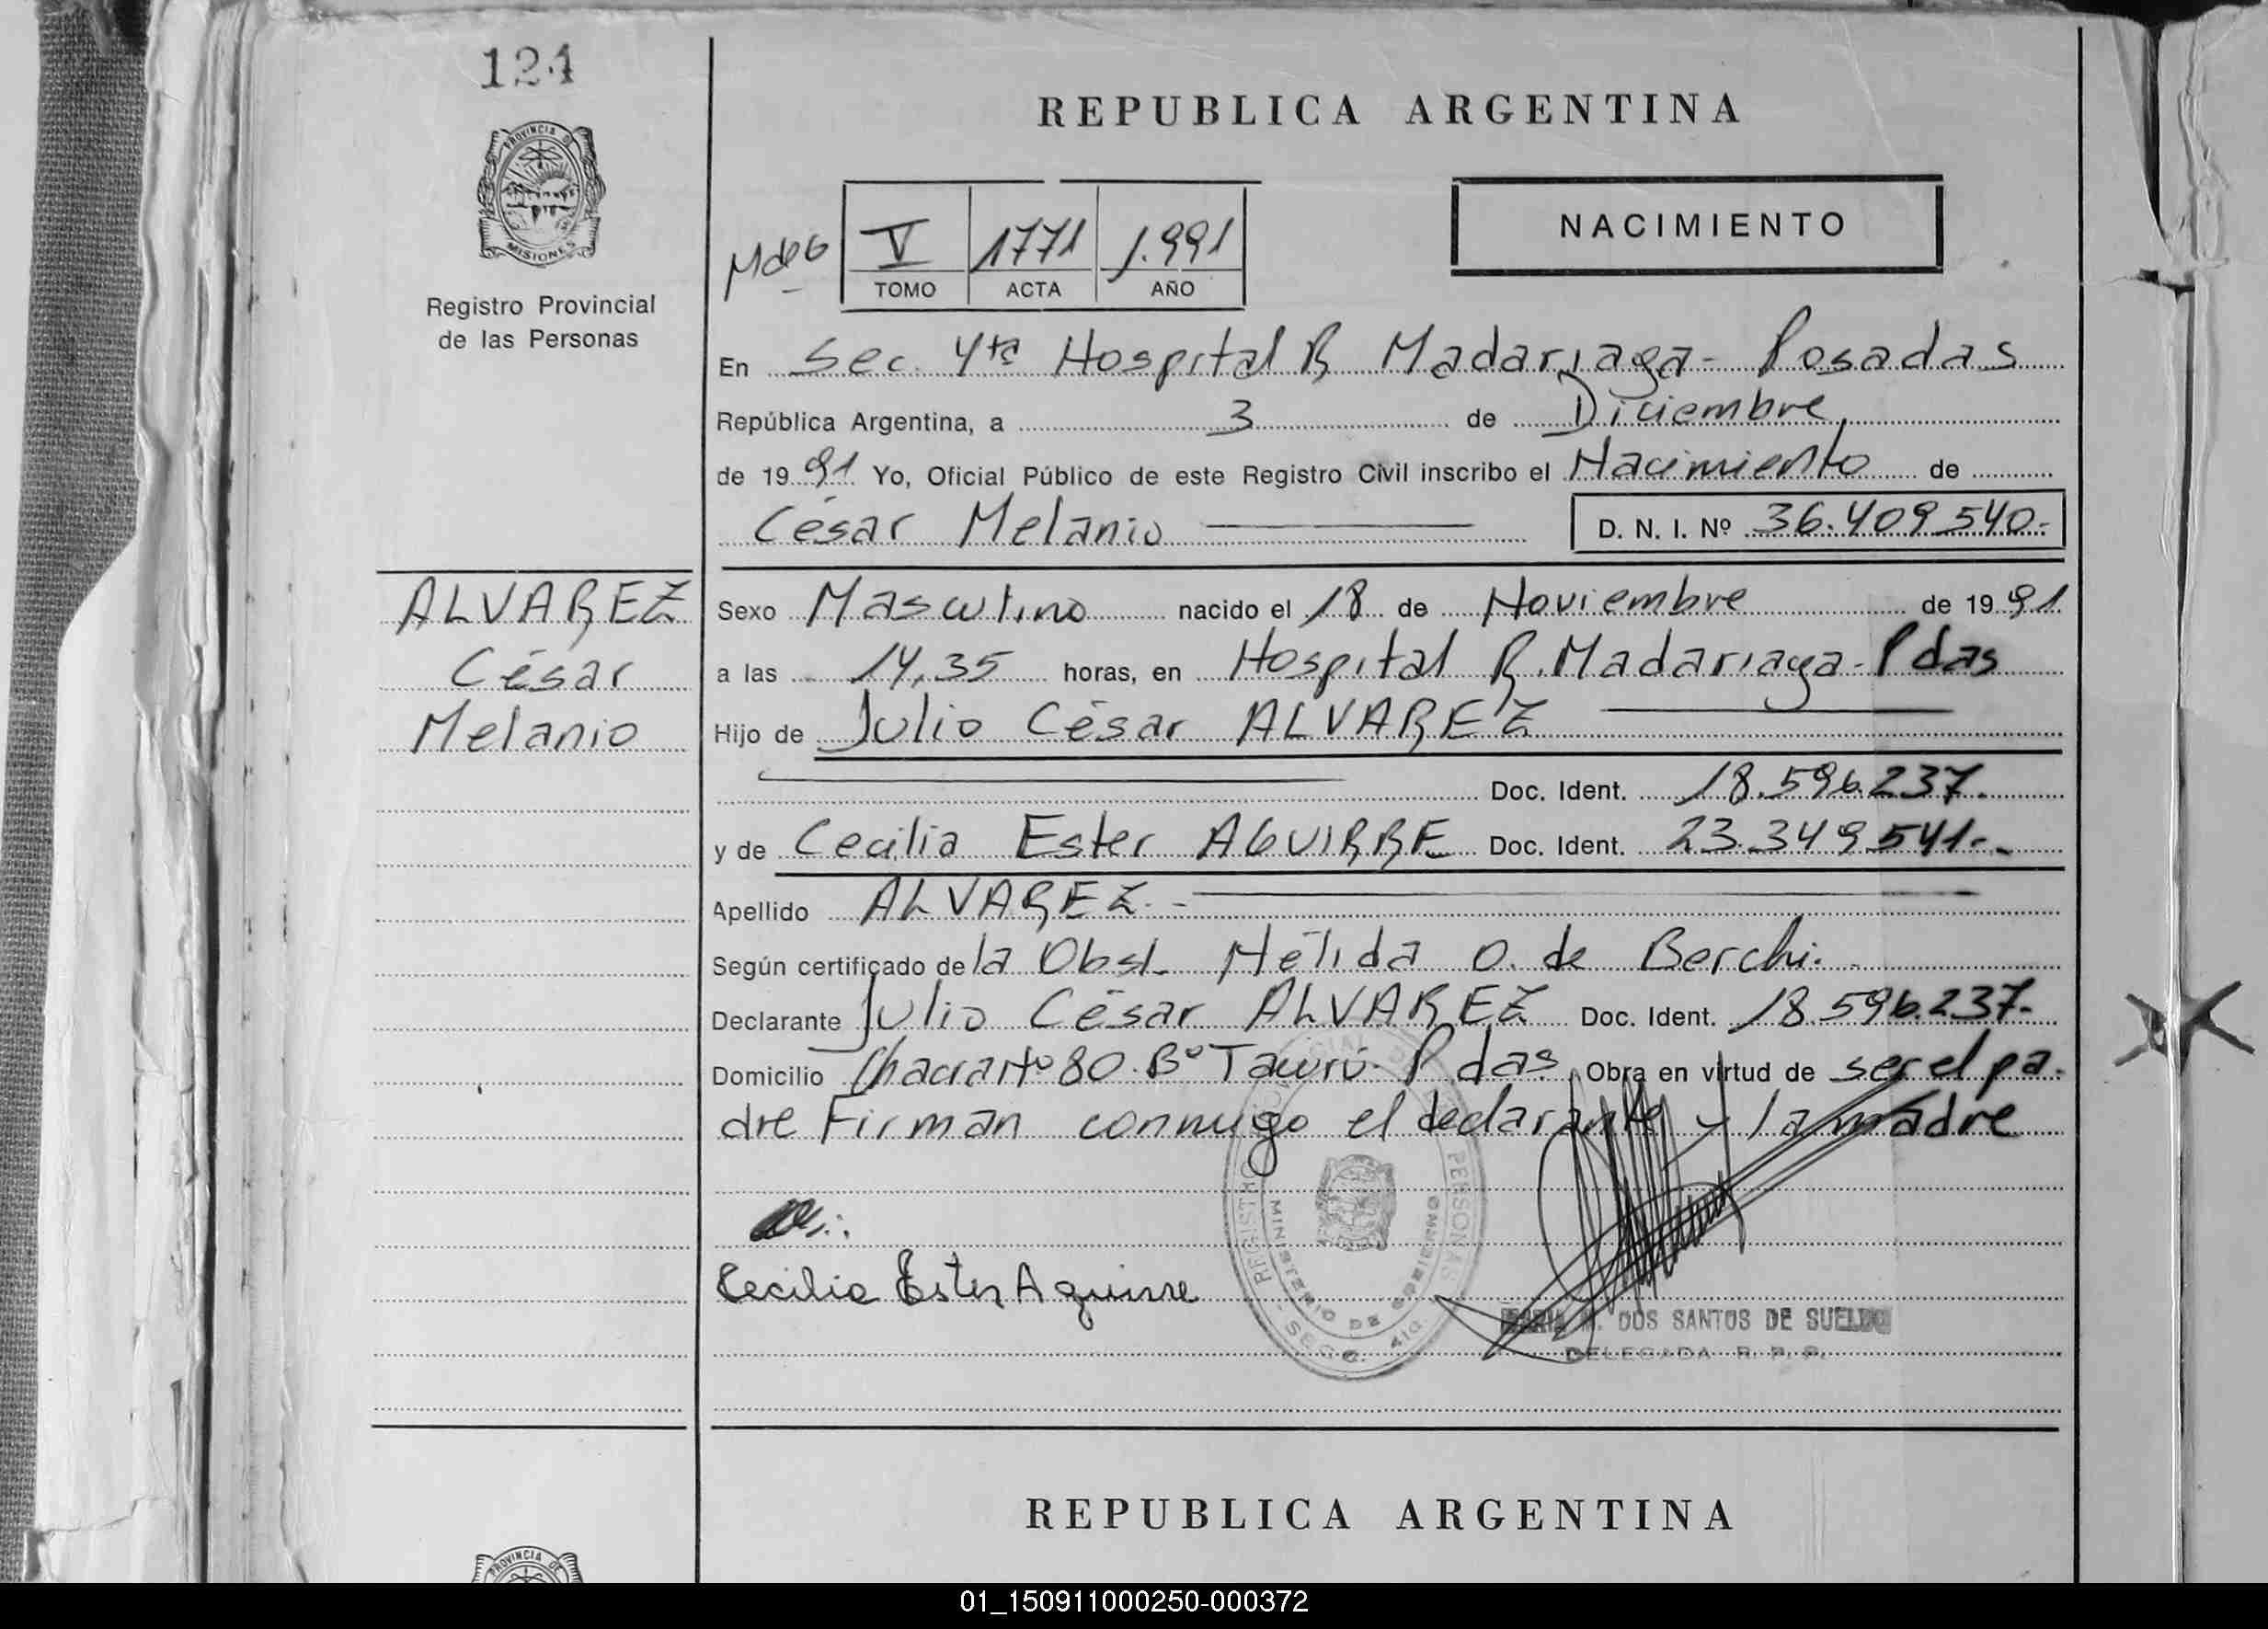 124
PROVINCIA DE
MISIONES
Registro Provincial
de las Personas
REPUBLICA ARGENTINA
V 1771 1.991
TOMO ACTA AÑO
NACIMIENTO
En Sec. 4ta Hospital R Madariaga - Posadas
República Argentina, a 3 de Diciembre
de 1991 Yo, Oficial Público de este Registro Civil inscribo el Nacimiento de
César Melanio D. N. I. Nº 36.409540.-
ALVAREZ
César
Melanio
Sexo Masculino nacido el 18 de Noviembre de 1991
a las 14,35 horas, en Hospital R. Madariaga - Pdas
Hijo de Julio César ALVAREZ
Doc. Ident. 18.596.237.
y de Cecilia Ester AGUIRRE Doc. Ident. 23.349541.-
Apellido ALVAREZ.-
Según certificado de la Obst. Nélida O. de Berchi.
Declarante Julio César ALVAREZ Doc. Ident. 18.596.237-
Domicilio Chacra Nº 80. Bº Tacurú - Pdas Obra en virtud de ser el pa-
dre Firman conmigo el declarante y la madre
Cecilia Ester Aguirre
REGISTRO PERSONAS
MINISTERIO DE GOBIERNO
SECC. 4ta.
M. DOS SANTOS DE SUELDO
DELEGADA R. P. P.
REPUBLICA ARGENTINA
PROVINCIA DE
01_150911000250-000372